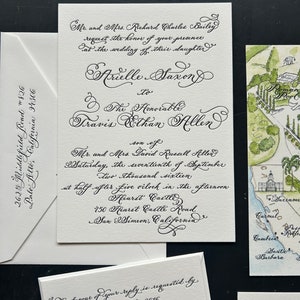 Mr. and Mrs. Richard Charles Bailey
request the honor of your presence
at the wedding of their daughter
Arielle Saxon
to
The Honorable
Travis Ethan Allen
son of
Mr. and Mrs. David Russell Allen
Saturday, the seventeenth of September
two thousand sixteen
at half after five o'clock in the afternoon
Hearst Castle
450 Hearst Castle Road
San Simeon, California
Road
California
of your reply is requested by
Carmel
Cambria
Santa Barbara